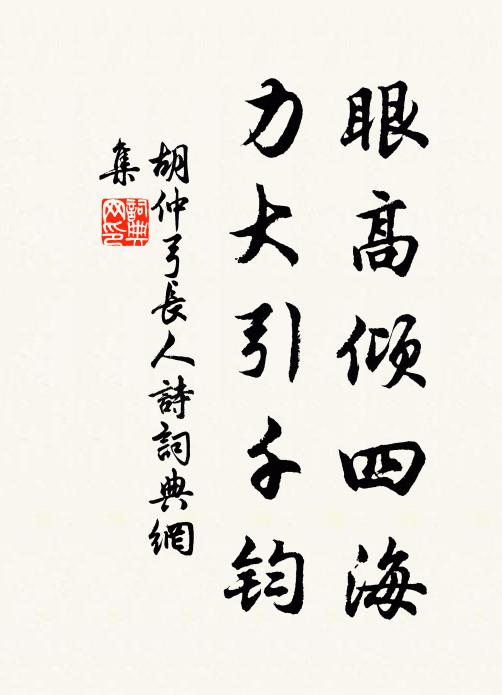 眼高倾四海
力大引千钧
胡仲弓長人詩詞典網
集
詞典网印